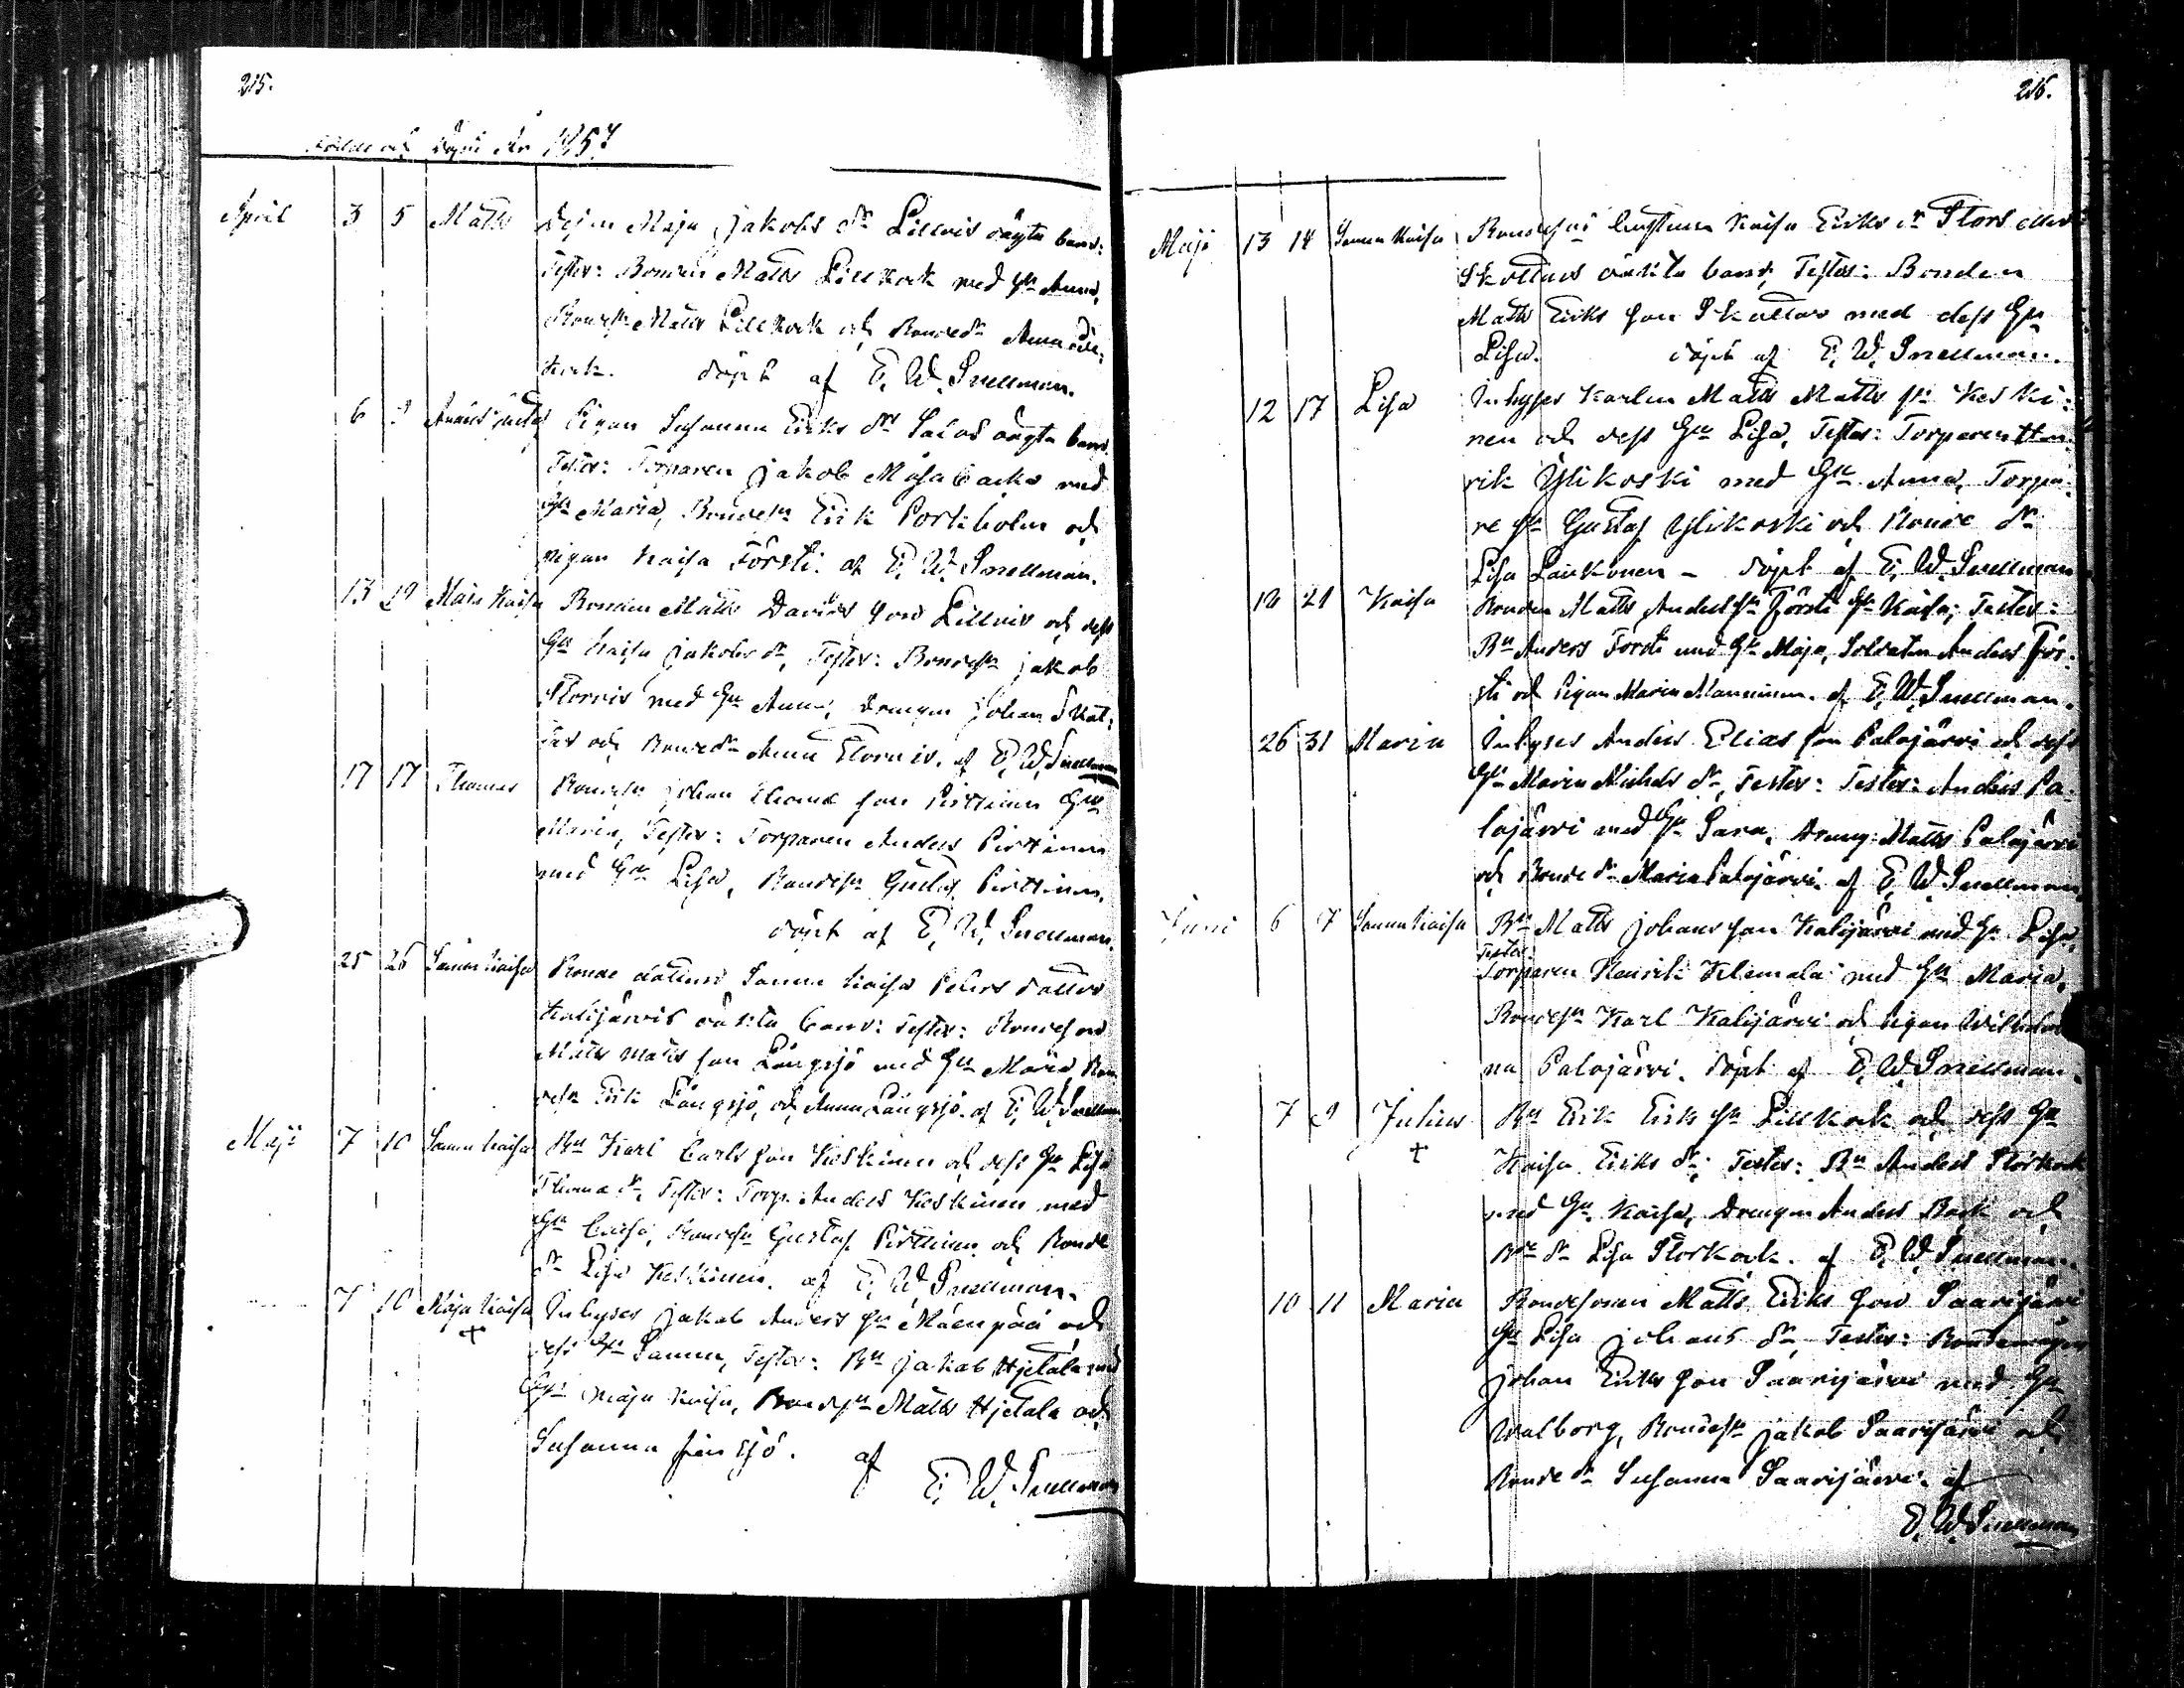 215.
Födde och Döpte År 1857
April 3 5 Matts Pigan Maja Jakobs dr Lillvis oägta barn:
Testes: Bonden Matts Lillkock med Hu Anna,
Bondesn Matts Lillkock och Bondedr Anna
kock. döpt af E. W. Snellman.
6 9 Anders Gustaf Pigan Susanna Eriks dr oägta barn.
Testes: Torparen Jakob Mosabacka med
Hu Maria, Bondesn Erik Porkholm och
pigan Kaisa Försti. af E. W. Snellman.
13 19 Maja Kaisa Bonden Matts Davids son Lillvis och dess
Hu Kaisa Jakobs dr, Testes: Bondesn Jakob
Storvis med Hu Anna, drengen Johan Skat-
tar och Bondedr Anna Storvis. af E. W. Snellman
17 17 Thomas Bondesn Johan Thomæ son Pirttinen Hu
Maria, Testes: Torparen Anders Pirttinen
med Hu Lisa, Bondesn Gustaf Pirttinen.
döpt af E. W. Snellman.
25 26 Sanna Kaisa Bonde dottren Sanna Kaisa Peters dotters
Kalijärvis oäkta barn: Testes: Bondesonen
Matts Matts son Långsjö med Hu Maria Bon-
desn Erik Långsjö, och Anna Långsjö. af E. W. Snellman
Maji 7 10 Sanna Kaisa Bn Karl Carls son Keskinen och dess Hu Lisa
Thomæ dr, Testes: Torp. Anders Keskinen med
Hu Caisa, Bondesn Gustaf Pirttinen och Bonde
dr Lisa Keskinen. af E. W. Snellman.
7 10 Maja Kaisa Inhyses Jakob Anders sn Mäenpää och
+
dess Hu Sanna, Testes: Bn Jakob Hjetala med
Hu Maja Kaisa, Bondesn Matts Hjetala och
Susanna sjö. af
E. W. Snellman
216.
Maji 13 14 Sanna Kaisa Kaisa Eriks dr Stors eller
Skattars oäkta barn, Testes: Bonden
Matts Eriks son Skattar med dess Hu
Lisa. döpt af E. W. Snellman.
12 17 Lisa Inhyses Karlen Matts Matts sn Keski-
nen och dess Hu Lisa, Testes: Torparen Hen-
rik Ylikoski med Hu Anna, Torpa-
re sn Gustaf Ylikoski och Bonde dr
Lisa - döpt af E. W. Snellman
18 21 Kaisa Bonden Matts Anders sn Försti Hu Kaisa; Testes:
Bn Anders Försti med Hu Maja, Soldaten Anders För-
sti och Pigan Maria Manninen. af E. W. Snellman.
26 31 Maria Inhyses Anders Elias son Palojärvi och dess
Hu Maria Michels dr, Testes: Testes: Anders Pa-
lojärvi med Hu Sara, dreng: Matts Palojärvi
och Bonde dr Maria Palojärvi. af E. W. Snellman
Juni 6 7 Sanna Kaisa Bn Matts Johans son Kalijärvi med Hu Lisa,
Testes:
Torparen Henrik Klemola med Hu Maria,
Bondesn Karl Kalijärvi och Pigan Wilhelmi-
na Palojärvi. döpt af E. W. Snellman.
7 9 Julius Bn Erik Eriks sn Lillkock och dess Hu
+
Kaisa Eriks dr; Testes: Bn Anders Storkock
med Hu Kaisa, Drengen Anders Kock och
Bde dr Lisa Storkock. af E. W. Snellman.
10 11 Maria Bondesonen Matts Eriks son Saarijärvi
Hu Lisa Johans dr, Testes:
Johan Eriks son Saarijärvi med Hu
Walborg, Bondesn Jakob Saarijärvi och
Bonde dr Susanna Saarijärvi. af
E. W. Snellman